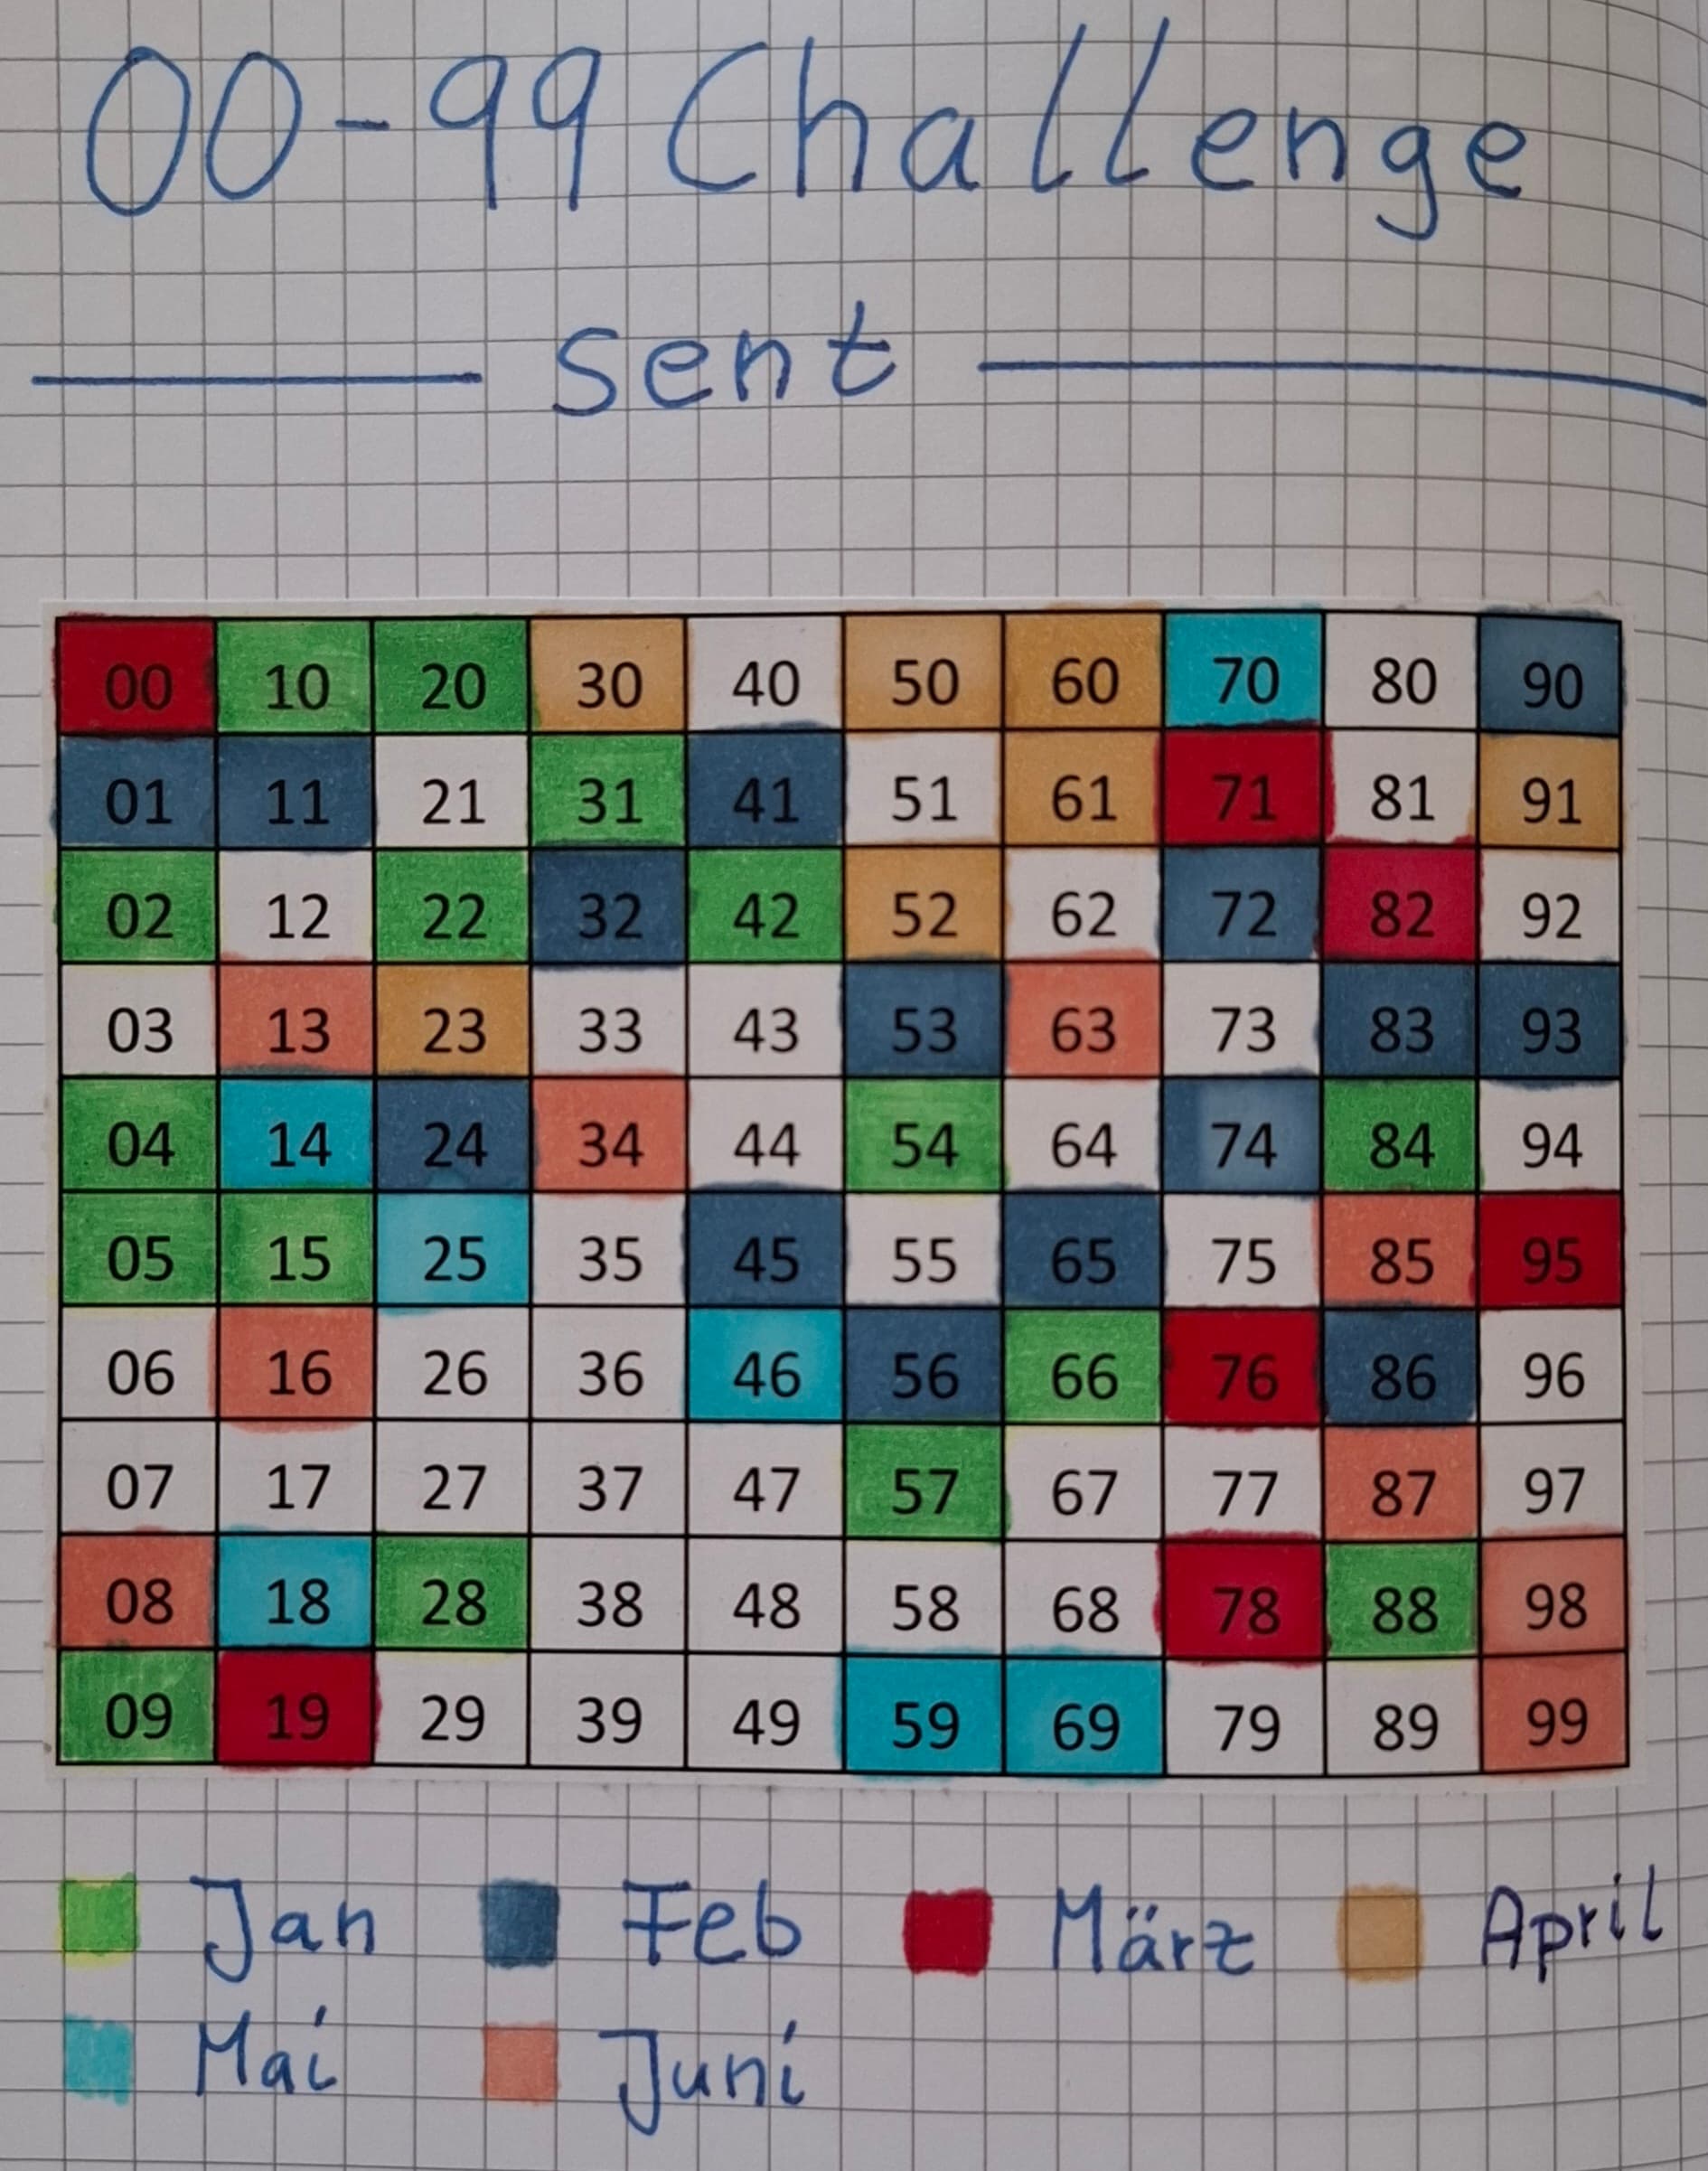 00-99 Challenge
sent
00 10 20 30 40 50 60 70 80 90
01 11 21 31 41 51 61 71 81 91
02 12 22 32 42 52 62 72 82 92
03 13 23 33 43 53 63 73 83 93
04 14 24 34 44 54 64 74 84 94
05 15 25 35 45 55 65 75 85 95
06 16 26 36 46 56 66 76 86 96
07 17 27 37 47 57 67 77 87 97
08 18 28 38 48 58 68 78 88 98
09 19 29 39 49 59 69 79 89 99
Jan Feb März April
Mai Juni